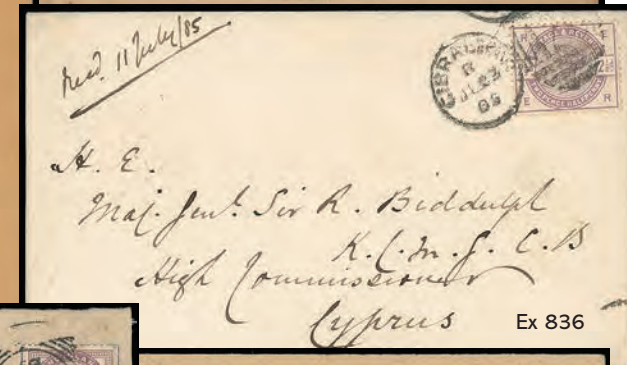 Recd. 11 July/85
GIBRALTAR
R
85
E R
H. E.
Maj. Genl. Sir R. Biddulph
K.C.M.G. C.B
High Commissioner
Cyprus
Ex 836